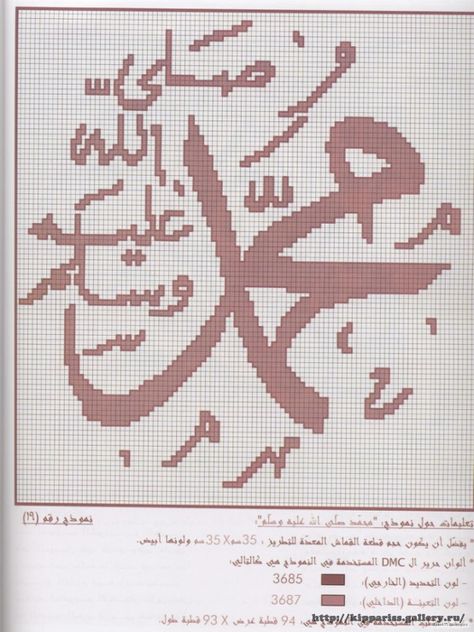 محمد
صلى
الله
عليه
وسلم
تعليمات حول نموذج: "محمّد صلّى الله عليه وسلم": نموذج رقم (١٩)
* يفضّل أن يكون حجم قطعة القماش المعدّة للتطريز : 35سم X 35سم ولونها أبيض.
* ألوان حرير ال DMC المستخدمة في النموذج هي كالتالي:
- لون التحديد (الخارجي): 3685
- لون التعبئة (الداخلي): 3687
المستخدمة في النموذج هي: 94 قطبة عرض X 93 قطبة طول.
http://kippariss.gallery.ru/